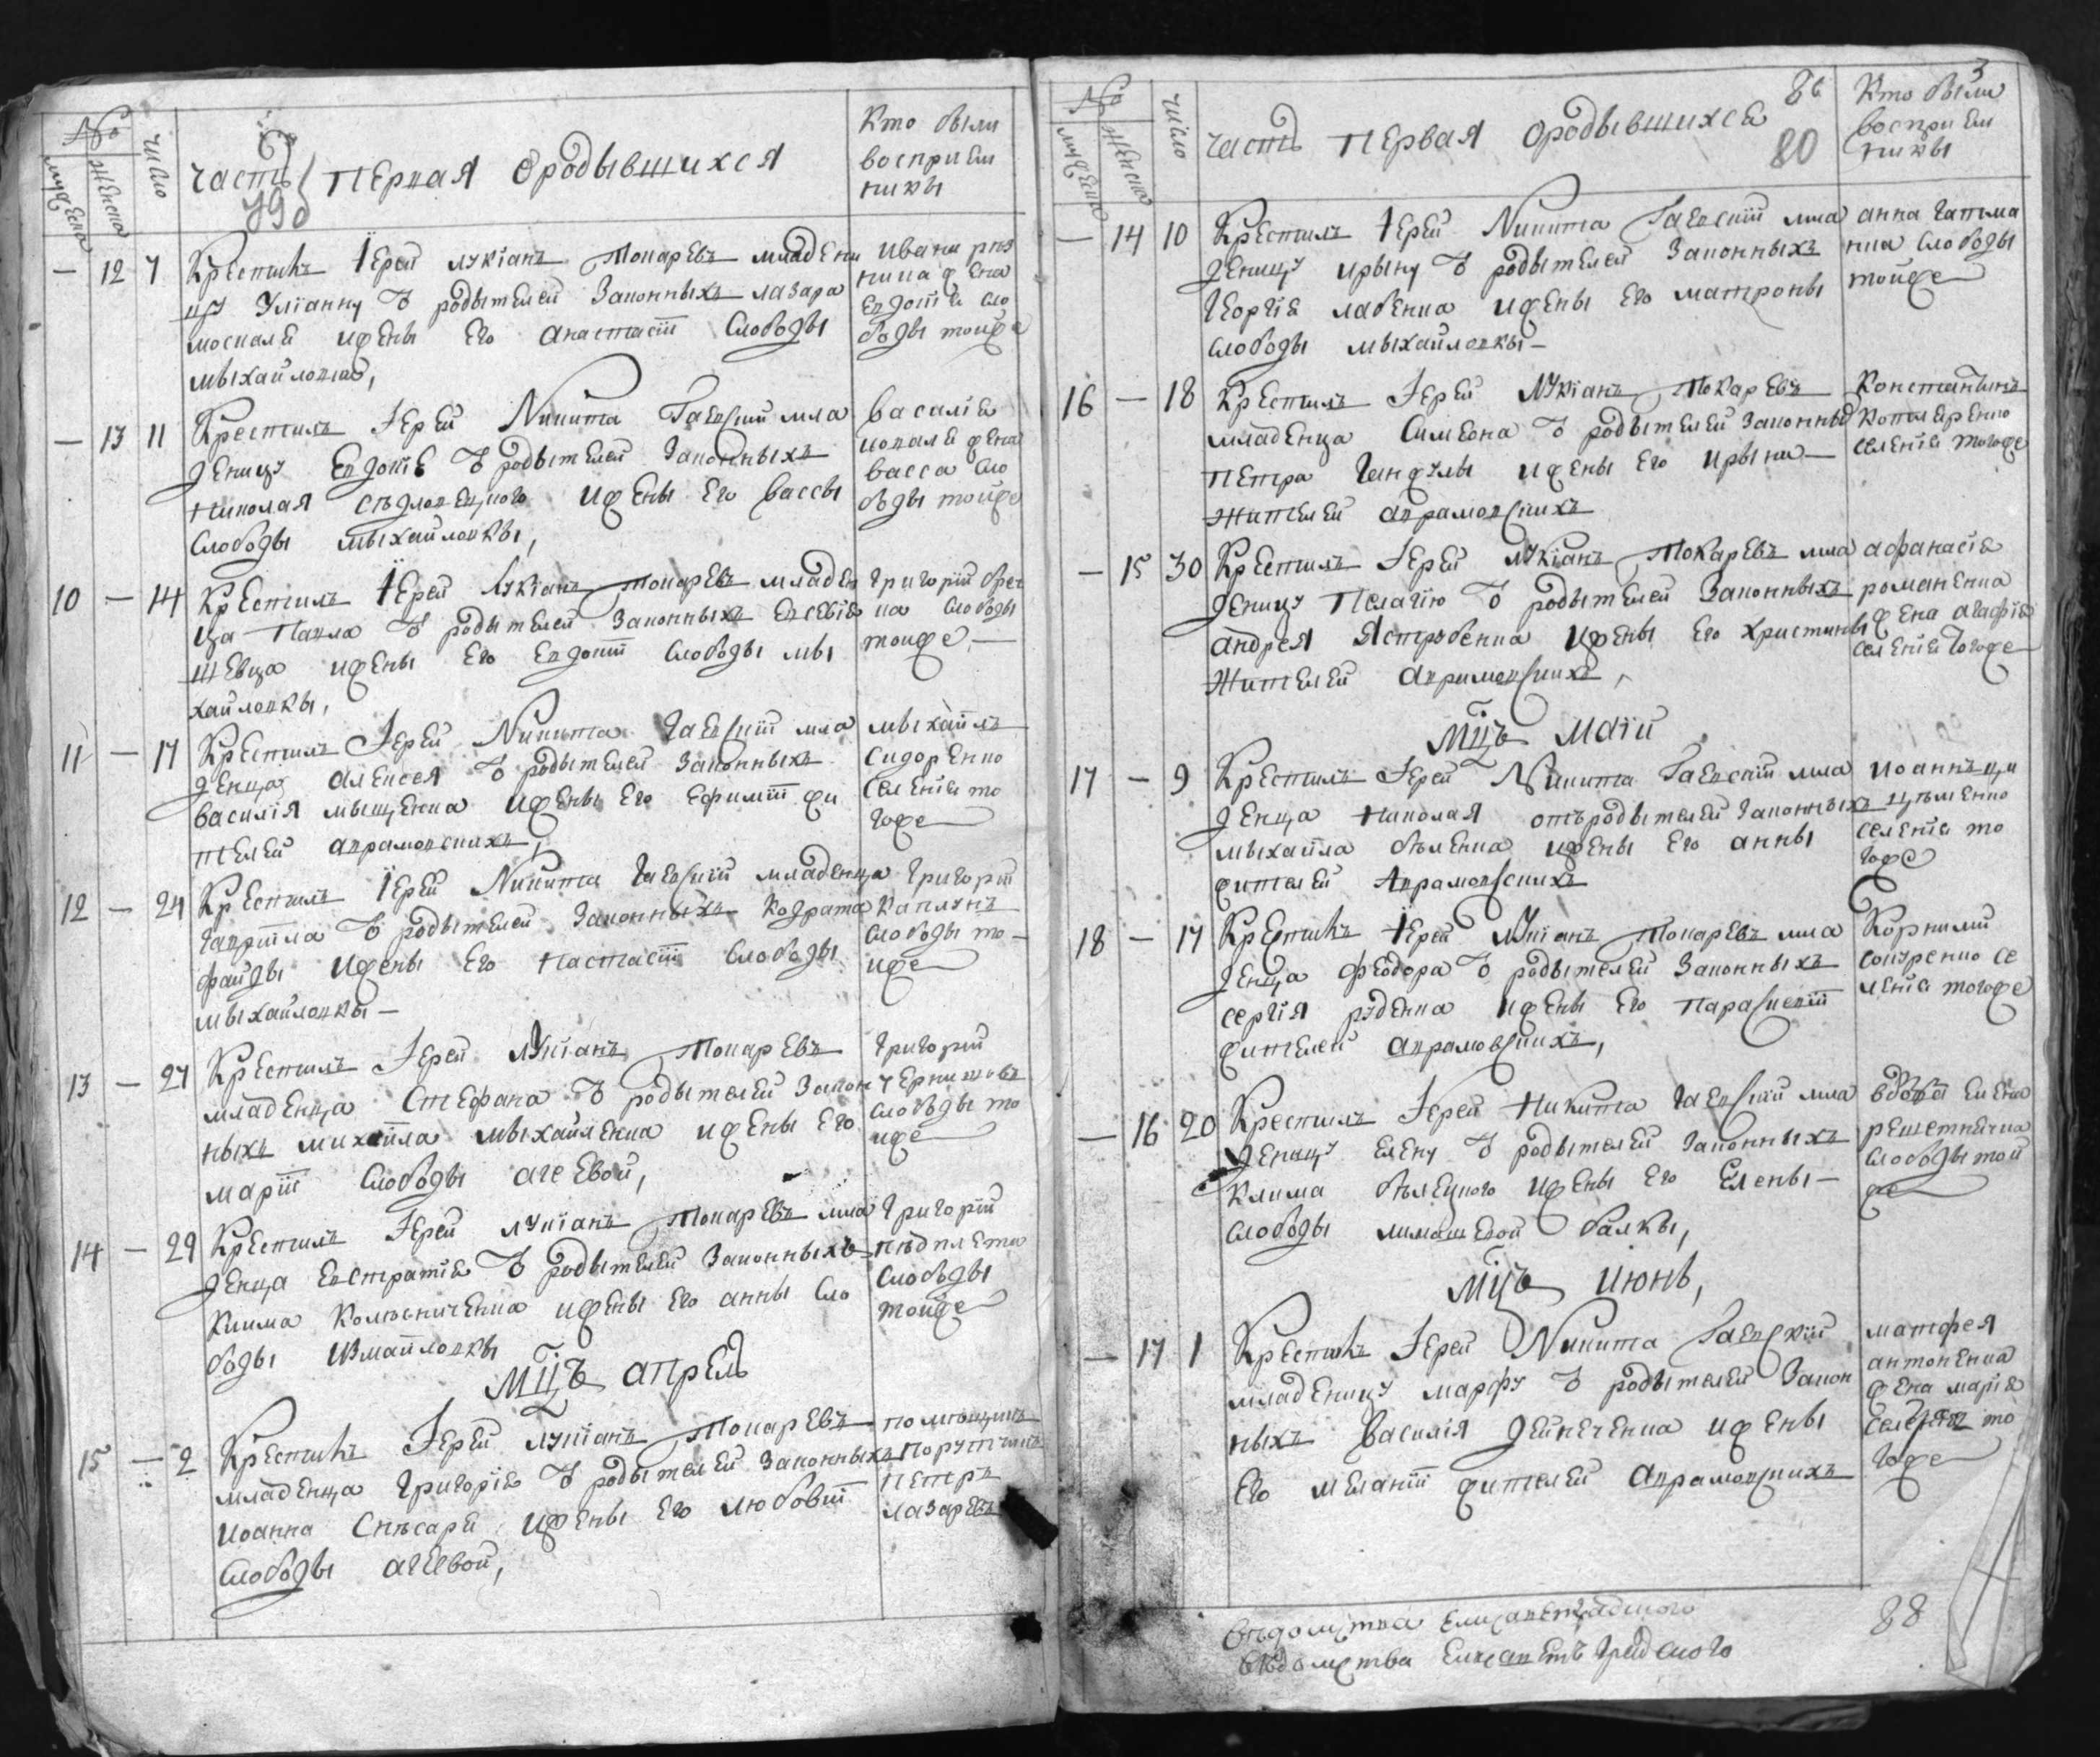 №
мужеска
женска
число
часть первая ородывшихся
79 об
Кто были
восприем
ники
— 12 7 Крестилъ Іерей лукіанъ Токаревъ младени
цу Уліанну ѿ родытелей Законныхъ лазара
москаля ижены его анастасіи Слободы
мыхайловки,
Ивана
жена
Евдокія Сло
боды тоиже
— 13 11 Крестилъ Іерей Никита Гаевскій мла
деницу Евдокію ѿ родытелей Законныхъ
николая ижены его вассы
Слободы мыхайловкы,
василія
коваля жена
васса Сло
боды тоиже
10 — 14 Крестилъ Іерей Лукіанъ Токаревъ младен
ца Павла ѿ родытелей Законныхъ Евсевія
шевца ижены его Евдокіи Слободы мы
хайловкы,
Григорій
Слободы
тоиже —
11 — 17 Крестилъ Іерей Никита Гаевскій мла
денца алексея ѿ родытелей Законныхъ
василія мыщенка ижены его ефиміи жи
телей аврамовскихъ,
мыхаилъ
Сидоренко
Селенія то
гоже
12 — 24 Крестилъ Іерей Никита Гаевскій младенца
гавріила ѿ родытелей Законныхъ кодрата
файды ижены его настасіи Слободы
мыхайловкы —
Григорій
Каплунъ
Слободы то
иже
13 — 27 Крестилъ Іерей лукіанъ Токаревъ
младенца Стефана ѿ родытелей Закон
ныхъ михаила мыхайленка ижены его
маріи Слободы агеевой,
Григорій
Слободы то
иже
14 — 29 Крестилъ Іерей лукіанъ Токаревъ мла
денца Евстратія ѿ родытелей Законныхъ
клима Колѣсниченка ижены его анны Сло
боды Измайловкы
Григорій
Слободы
тоиже
Мцъ апрель
15 — 2 Крестилъ Іерей лукіанъ Токаревъ
младенца Григорія ѿ родытелей Законныхъ
иоанна Слѣсаря ижены его любовіи
Слободы агеевой,
помѣщикъ
Порутчикъ
Петръ
лазаревъ
№
мужеска
женска
число
часть первая ородывшихся
86
80
3
Кто были
восприем
никы
— 14 10 Крестилъ Іерей Никита Гаевскій мла
деницу ирыну ѿ родытелей Законныхъ
Георгія лабенка ижены его матроны
Слободы мыхайловкы —
анна
Слободы
тоиже
16 — 18 Крестилъ Іерей лукіанъ Токаревъ
младенца Симеона ѿ родытелей Законны
Петра ижены его ирыны —
жителей аврамовскихъ
Константинъ
Селенія тогоже
— 15 30 Крестилъ Іерей лукіанъ Токаревъ мла
деницу Пелагію ѿ родытелей Законныхъ
андрея Ястребенка ижены его христины
жителей аврамовскихъ,
афанасія
романенка
жена агафія
Селенія тогоже
Мцъ Маій
17 — 9 Крестилъ Іерей Никита Гаевскій мла
денца николая отъ родытелей Законныхъ
мыхайла бѣленка ижены его анны
жителей Аврамовскихъ
иоаннъ
Селенія то
гоже
18 — 17 Крестилъ Іерей Лукіанъ Токаревъ мла
денца феодора ѿ родытелей Законныхъ
Сергія руденка ижены его параскевіи
жителей аврамовскихъ,
Корнилій
Се
ленія тогоже
— 16 20 Крестилъ Іерей Никита Гаевскій мла
деницу елену ѿ родытелей Законныхъ
Клима бѣлецкого ижены его Елены —
Слободы лимашевой балкы,
вдова елена
решетнячка
Слободы той
же
Мцъ июнь,
— 17 1 Крестилъ Іерей Никита Гаевскій
младеницу марфу ѿ родытелей Закон
ныхъ Василія Дейнеченка ижены
его меланіи жителей аврамовскихъ
матфея
антоненка
жена марія
Селенія то
гоже
вѣдомства Елисаветградского
вѣдомства Елисаветъградского
88